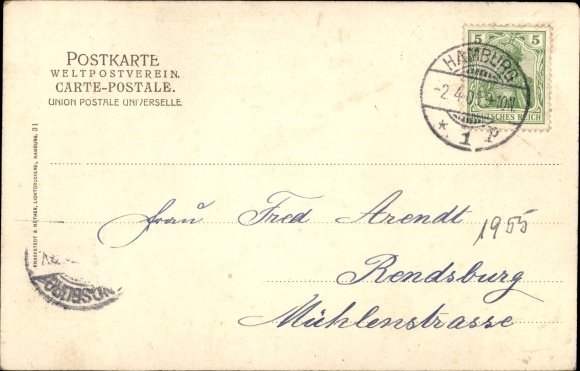 POSTKARTE
WELTPOSTVEREIN.
CARTE-POSTALE.
UNION POSTALE UNIVERSELLE
5 5
DEUTSCHES REICH
HAMBURG
* 1 P
KNACKSTEDT & NÄTHER, LICHTDRUCKEREI, HAMBURG. 31
Frau Fred Arendt
1955
Rendsburg
Mühlenstrasse